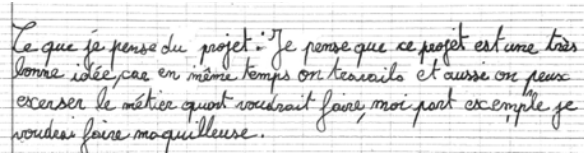 Ce que je pense du projet : Je pense que ce projet est une très
bonne idée, car en même temps on travaile et aussi on peux
excerser le métier quont voudrait faire, moi part excemple je
voudrai faire maquilleuse.